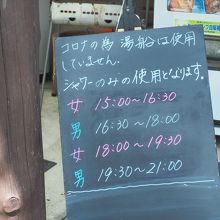 コロナの為 湯船は使用
していません。
シャワーのみの使用となります。
女 15:00～16:30
男 16:30～18:00
女 18:00～19:30
男 19:30～21:00